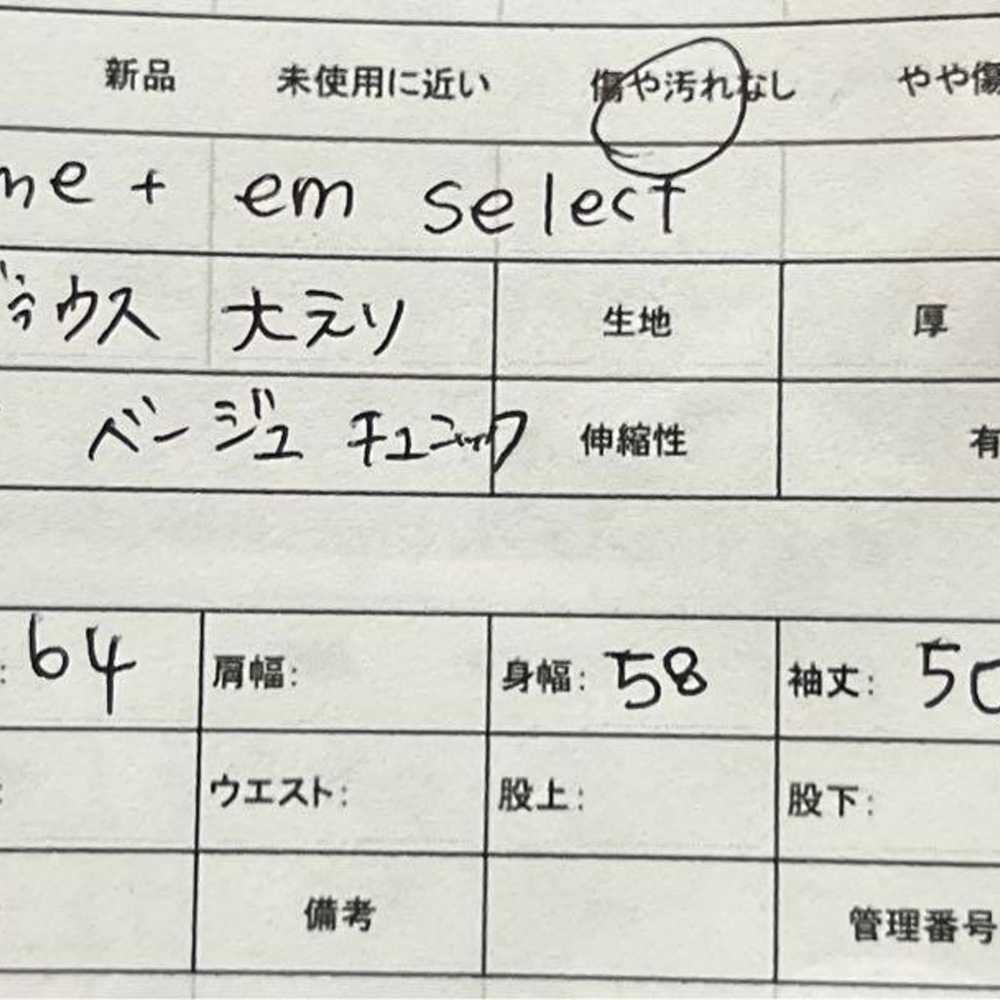 新品 未使用に近い 傷や汚れなし やや傷
me + em select
ブラウス 大えり 生地 厚
ベージュ チュニック 伸縮性 有
: 64 肩幅: 身幅: 58 袖丈: 50
: ウエスト: 股上: 股下:
備考 管理番号